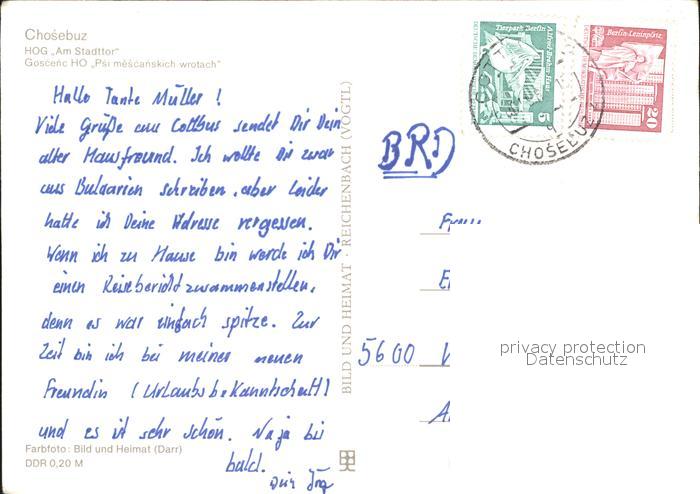 Chośebuz
HOG „Am Stadttor"
Gosćeńc HO „Pśi měšćańskich wrotach"
Hallo Tante Müller !
Viele Grüße aus Cottbus sendet Dir Dein
alter Hausfreund. Ich wollte Dir zwar
aus Bulgarien schreiben, aber leider
hatte ich Deine Adresse vergessen.
Wenn ich zu Hause bin werde ich Dir
einen Reisebericht zusammenstellen,
denn es war einfach spitze. Zur
Zeit bin ich bei meiner neuen
Freundin (Urlaubsbekanntschaft)
und es ist sehr schön. Na ja bis
bald.
Dein Jörg
Farbfoto: Bild und Heimat (Darr)
DDR 0,20 M
BILD UND HEIMAT · REICHENBACH (VOGTL)
Tierpark Berlin
Alfred-Brehm-Haus
5
Berlin-Leninplatz
20
CHOŚEBUZ
BRD
5600
privacy protection
Datenschutz